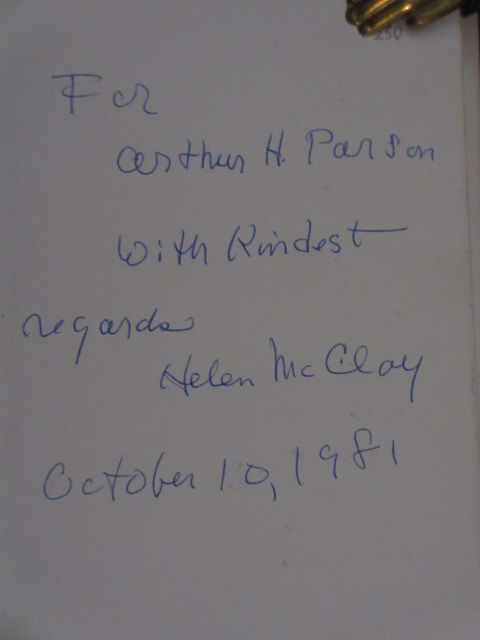 250
For
Arthur H. Parson
With Kindest
regards
Helen McCloy
October 10, 1981